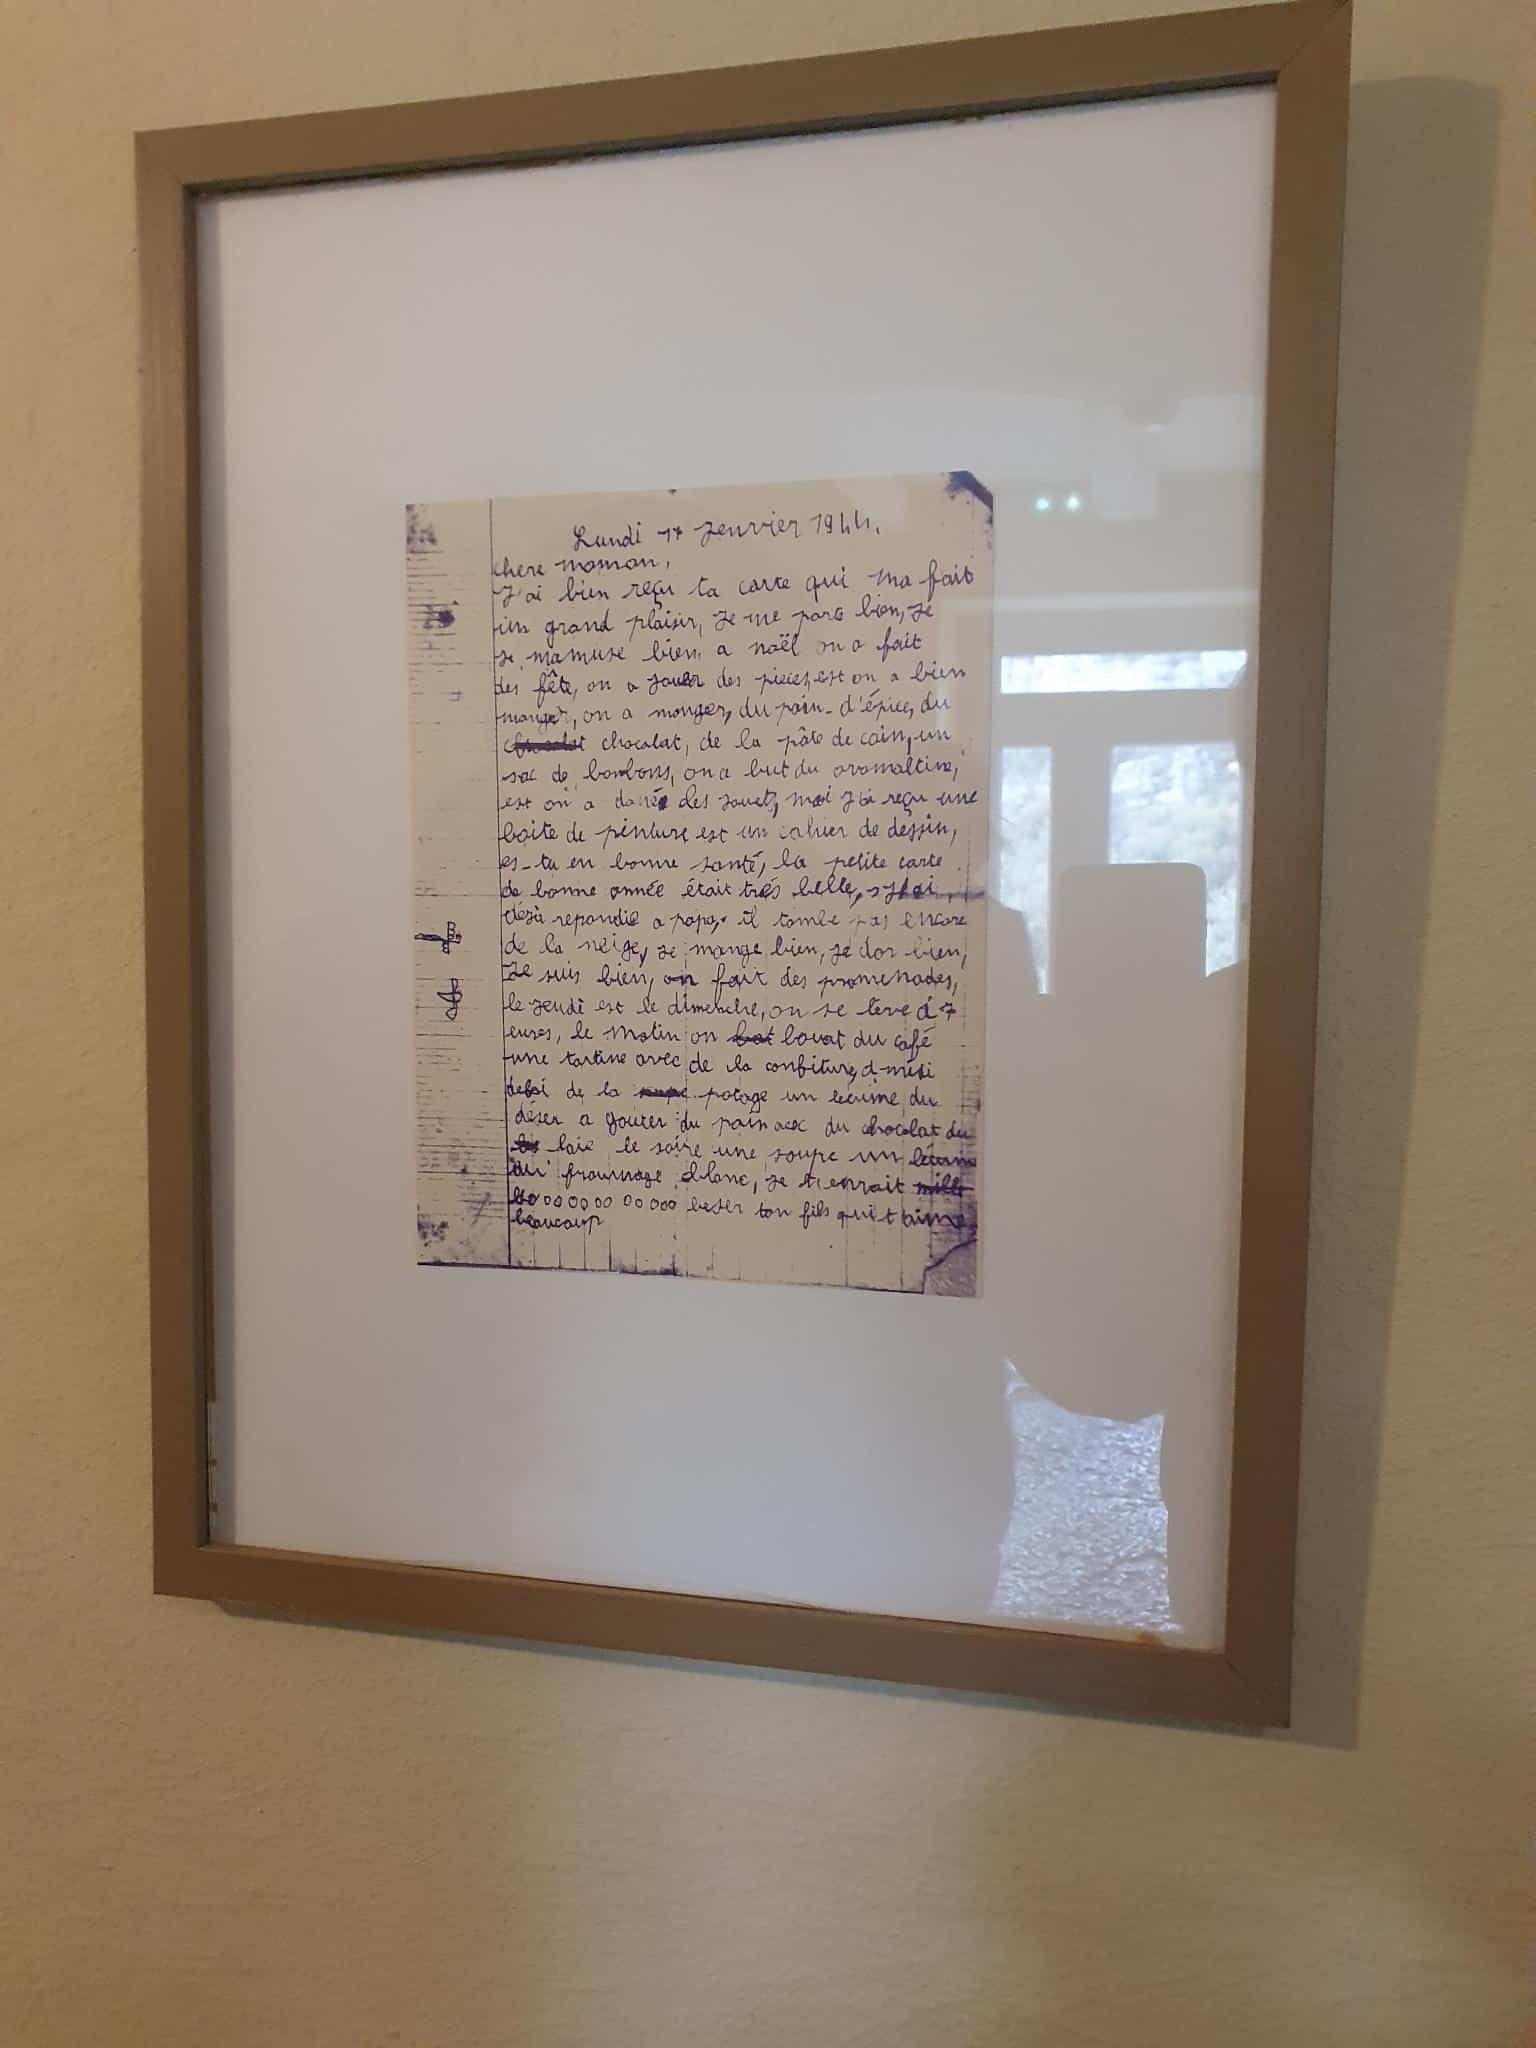 Lundi 17 Jenvier 1944.
chere maman,
J'ai bien reçu ta carte qui ma fait
un grand plaisir, Je me porte bien, Je
Je mamuse bien, a noël on a fait
des fête, on a jouer des pieces, est on a bien
manger, on a manger, du pain-d'épice, du
chocolat, de la pâte de coin, un
sac de bonbons, on a but du ovomaltine,
est on a donée des jouets, moi J'ai reçu une
boite de peinture est un cahier de dessin,
es-tu en bonne santé, la petite carte
de bonne année était très belle, J'ai
déjà repondie a papa. il tombe pas encore
de la neige, Je mange bien, Je dor bien,
Je suis bien, on fait des promenades,
le Jeudi est le dimenche, on se lève à 7
eures, le matin on bouat du café
une tartine avec de la confiture, a midi
de la potage un légume du
déser a gouter du pain avec du chocolat du
laie le soire une soupe un légume
du frommage blanc, Je t'envait
000000 00000 beser ton fils qui t'aime
beaucoup